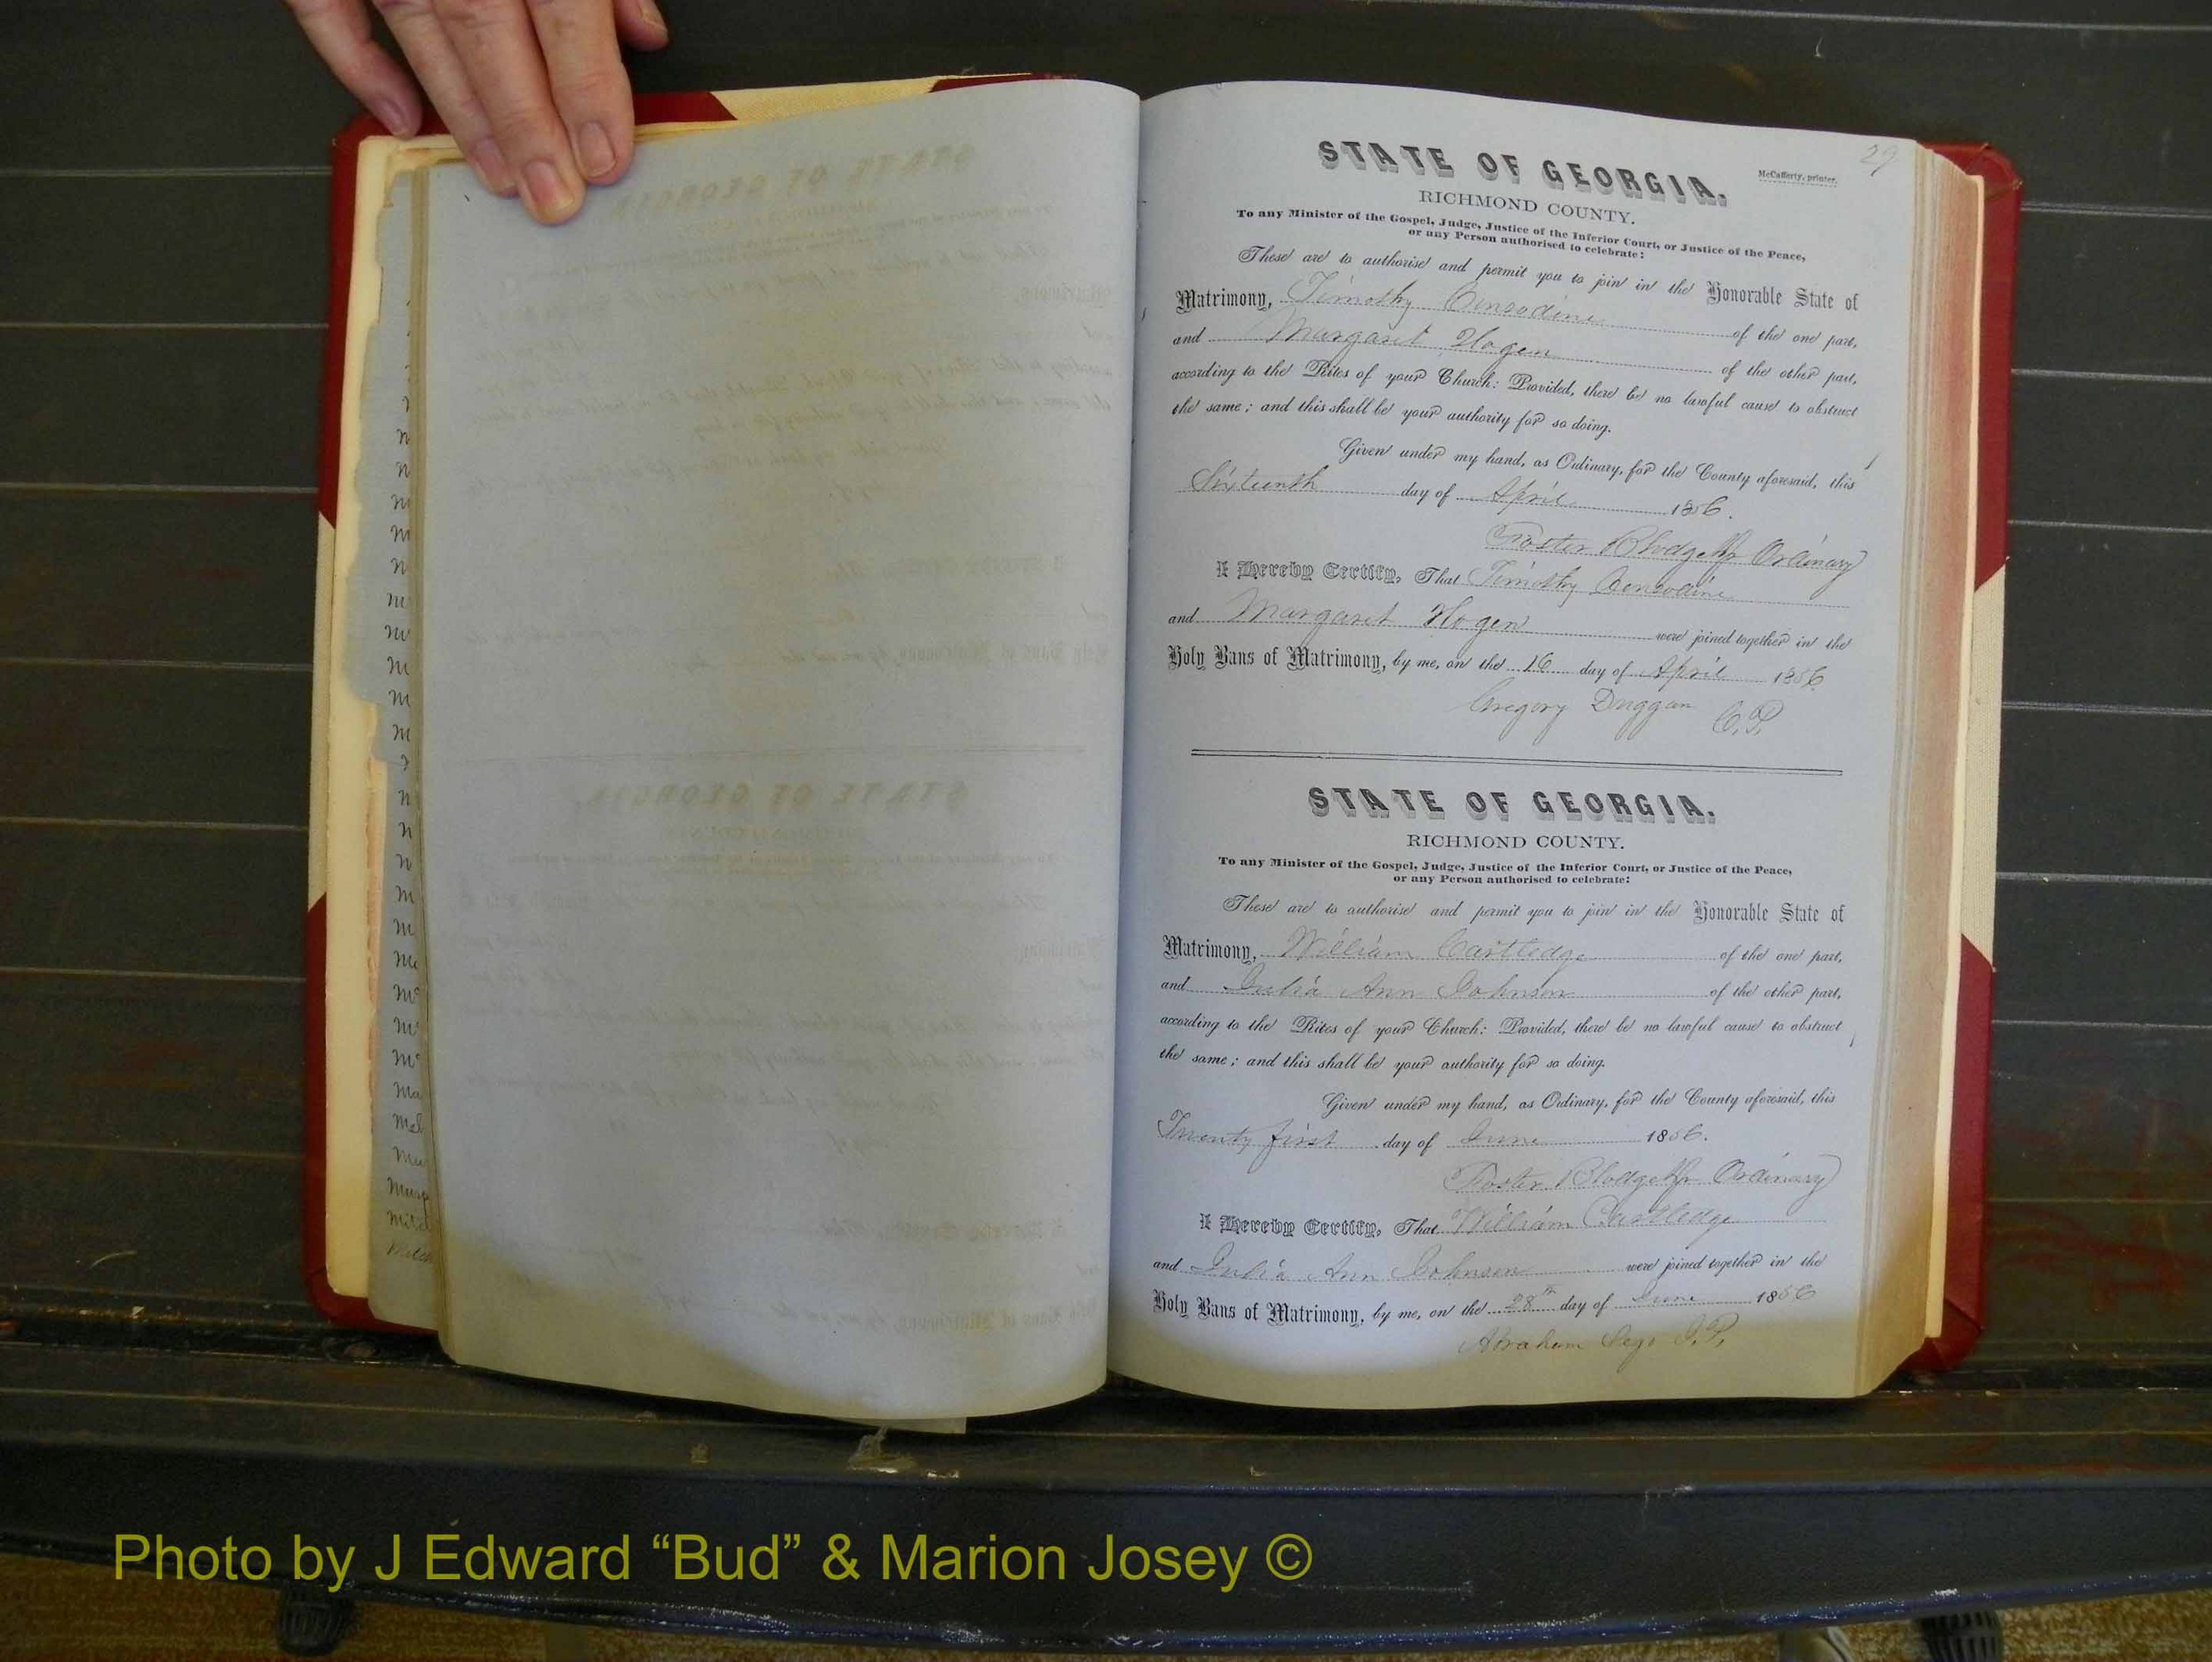 29
STATE OF GEORGIA.
McCafferty, printer.
RICHMOND COUNTY.
To any Minister of the Gospel, Judge, Justice of the Inferior Court, or Justice of the Peace,
or any Person authorised to celebrate:
These are to authorise and permit you to join in the Honorable State of
Matrimony, Timothy Consodine of the one part,
and Margaret Hogen of the other part,
according to the Rites of your Church: Provided, there be no lawful cause to obstruct
the same; and this shall be your authority for so doing.
Given under my hand, as Ordinary, for the County aforesaid, this
Sixteenth day of April 1856.
Foster Blodget Jr Ordinary
I Hereby Certify, That Timothy Consodine
and Margaret Hogen were joined together in the
Holy Bans of Matrimony, by me, on the 16 day of April 1856
Gregory Duggan C.P.
STATE OF GEORGIA.
RICHMOND COUNTY.
To any Minister of the Gospel, Judge, Justice of the Inferior Court, or Justice of the Peace,
or any Person authorised to celebrate:
These are to authorise and permit you to join in the Honorable State of
Matrimony, William Cartledge of the one part,
and Julia Ann Johnson of the other part,
according to the Rites of your Church: Provided, there be no lawful cause to obstruct
the same; and this shall be your authority for so doing.
Given under my hand, as Ordinary, for the County aforesaid, this
Twenty first day of June 1856.
Foster Blodget Jr Ordinary
I Hereby Certify, That William Cartledge
and Julia Ann Johnson were joined together in the
Holy Bans of Matrimony, by me, on the 28th day of June 1856
Abraham Sego J.P.
Photo by J Edward “Bud” & Marion Josey ©